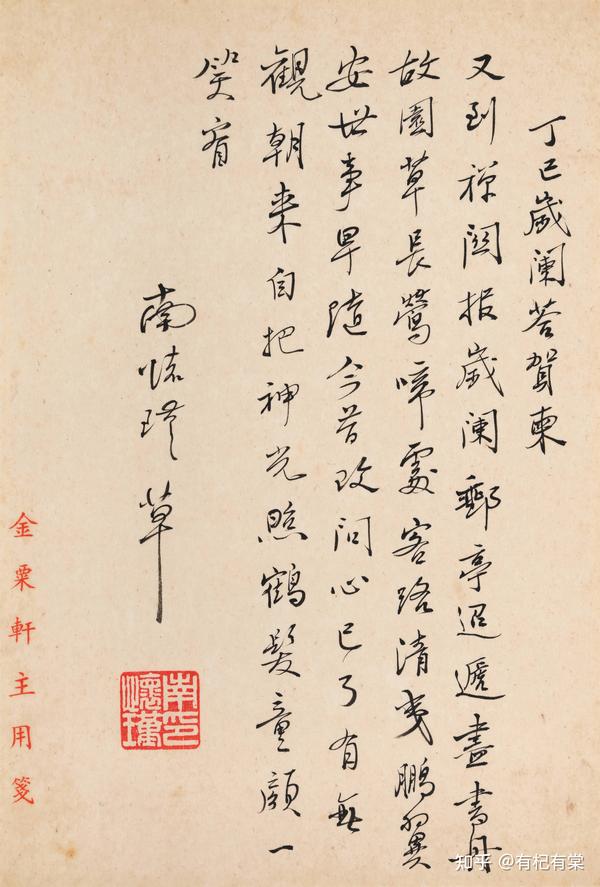 丁巳歲闌答賀柬
又到禪關报歲闌郵亭迢遞盡書丹
故園草長鶯啼處客路清夷鵬翼
安世事早隨今昔改问心已了有無
觀朝来自把神光照鶴髮童顔一
笑看
南懷瑾草
南懷瑾印
金粟軒主用箋
知乎 @有杞有棠